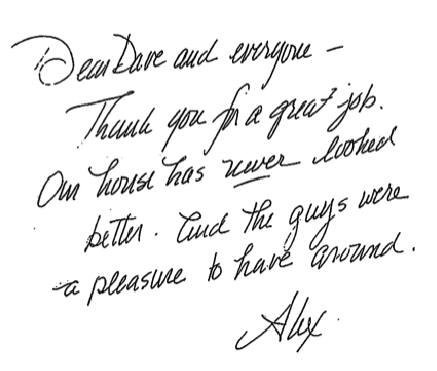 Dear Dave and everyone –
Thank you for a great job.
Our house has never looked
better. And the guys were
a pleasure to have around.
Alex.